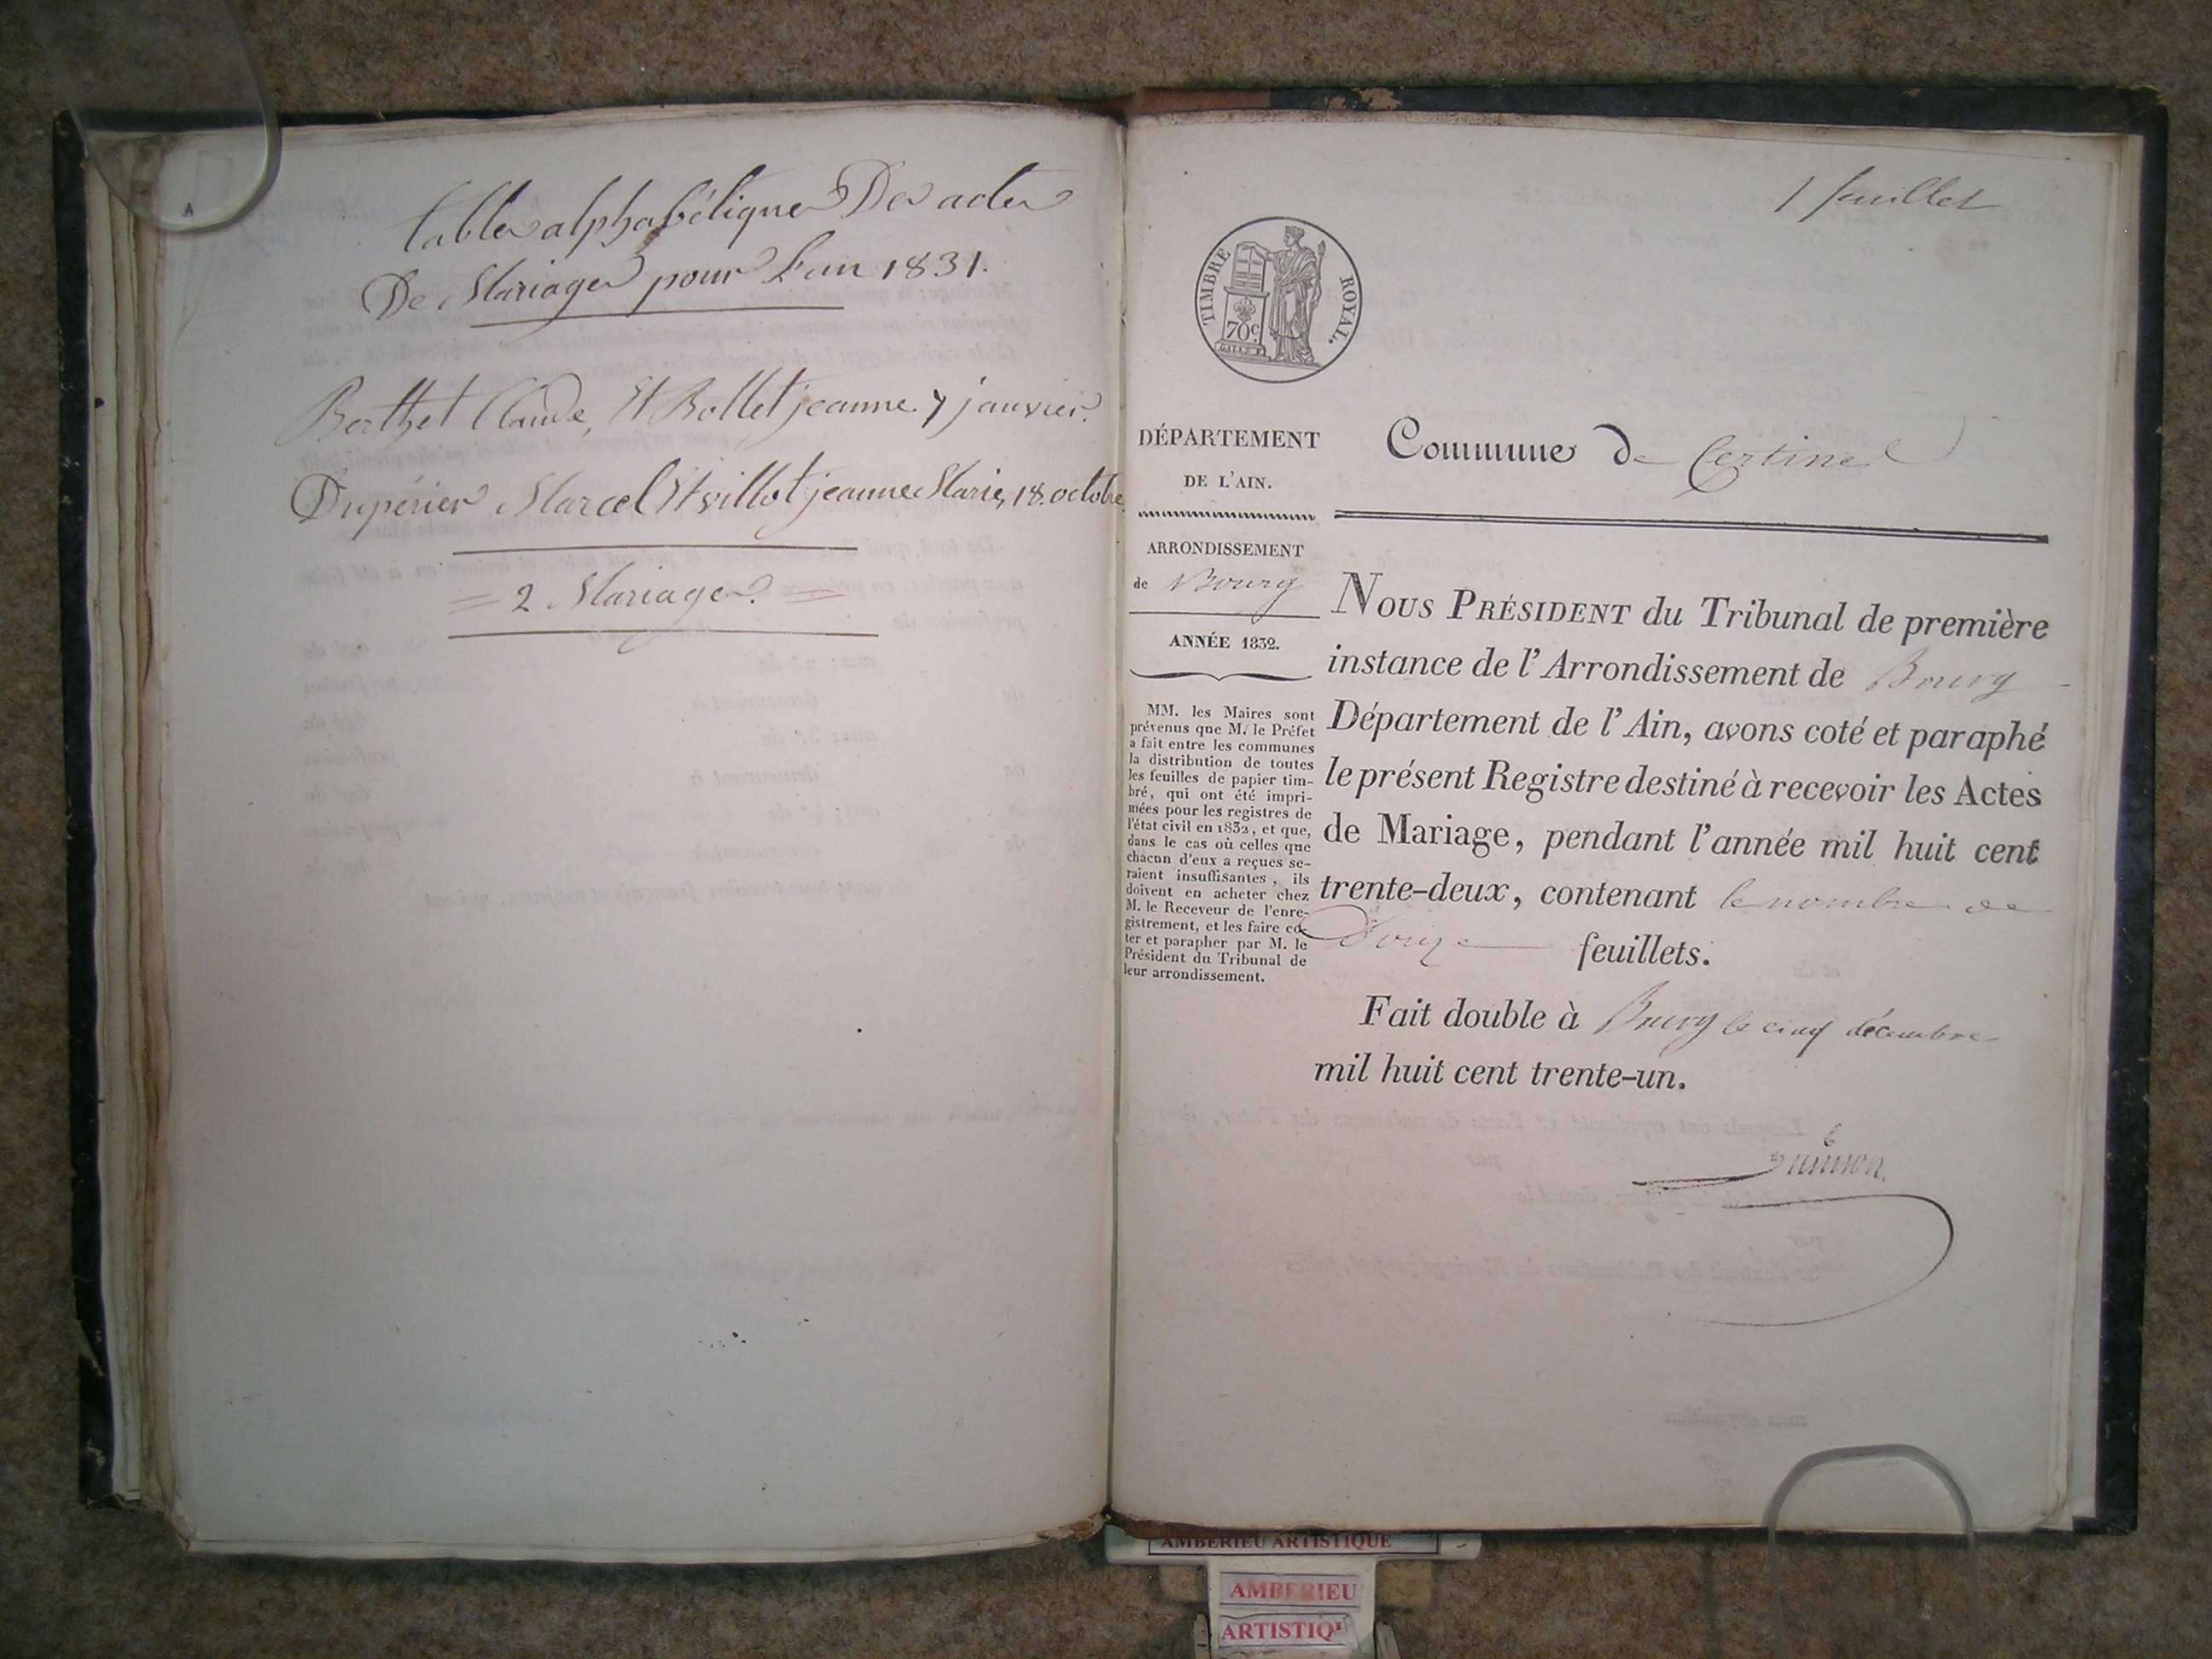 tables alphabétiques Des actes
De Mariages pour L'an 1831.
Berthet Claude, Et Bollet jeanne. 7 janvier.
Dupérier Marcel Et villot jeanne Marie, 18. octobre.
2 Mariages.
1 feuillet
TIMBRE ROYAL.
70.c
DÉPARTEMENT
DE L'AIN.
Commune de Certines
ARRONDISSEMENT
de Bourg
ANNÉE 1832.
MM. les Maires sont
prévenus que M. le Préfet
a fait entre les communes
la distribution de toutes
les feuilles de papier tim-
bré, qui ont été impri-
mées pour les registres de
l'état civil en 1832, et que,
dans le cas où celles que
chacun d'eux a reçues se-
raient insuffisantes, ils
doivent en acheter chez
M. le Receveur de l'enre-
gistrement, et les faire co-
ter et parapher par M. le
Président du Tribunal de
leur arrondissement.
NOUS PRÉSIDENT du Tribunal de première
instance de l'Arrondissement de Bourg
Département de l'Ain, avons coté et paraphé
le présent Registre destiné à recevoir les Actes
de Mariage, pendant l'année mil huit cent
trente-deux, contenant le nombre de
Douze feuillets.
Fait double à Bourg le cinq décembre
mil huit cent trente-un.
AMBERIEU ARTISTIQUE
AMBERIEU
ARTISTIQ